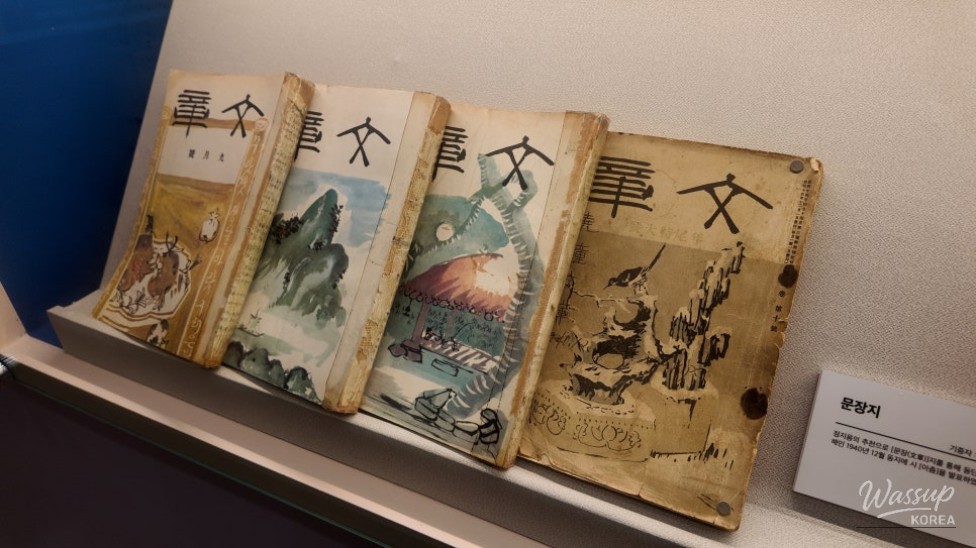 文章
九月號
文章
文章
文章
문장지
기증자
정지용의 추천으로 [문장(文章)]지를 통해 등단
해인 1940년 12월 동지에 시 발표하였
Wassup
KOREA